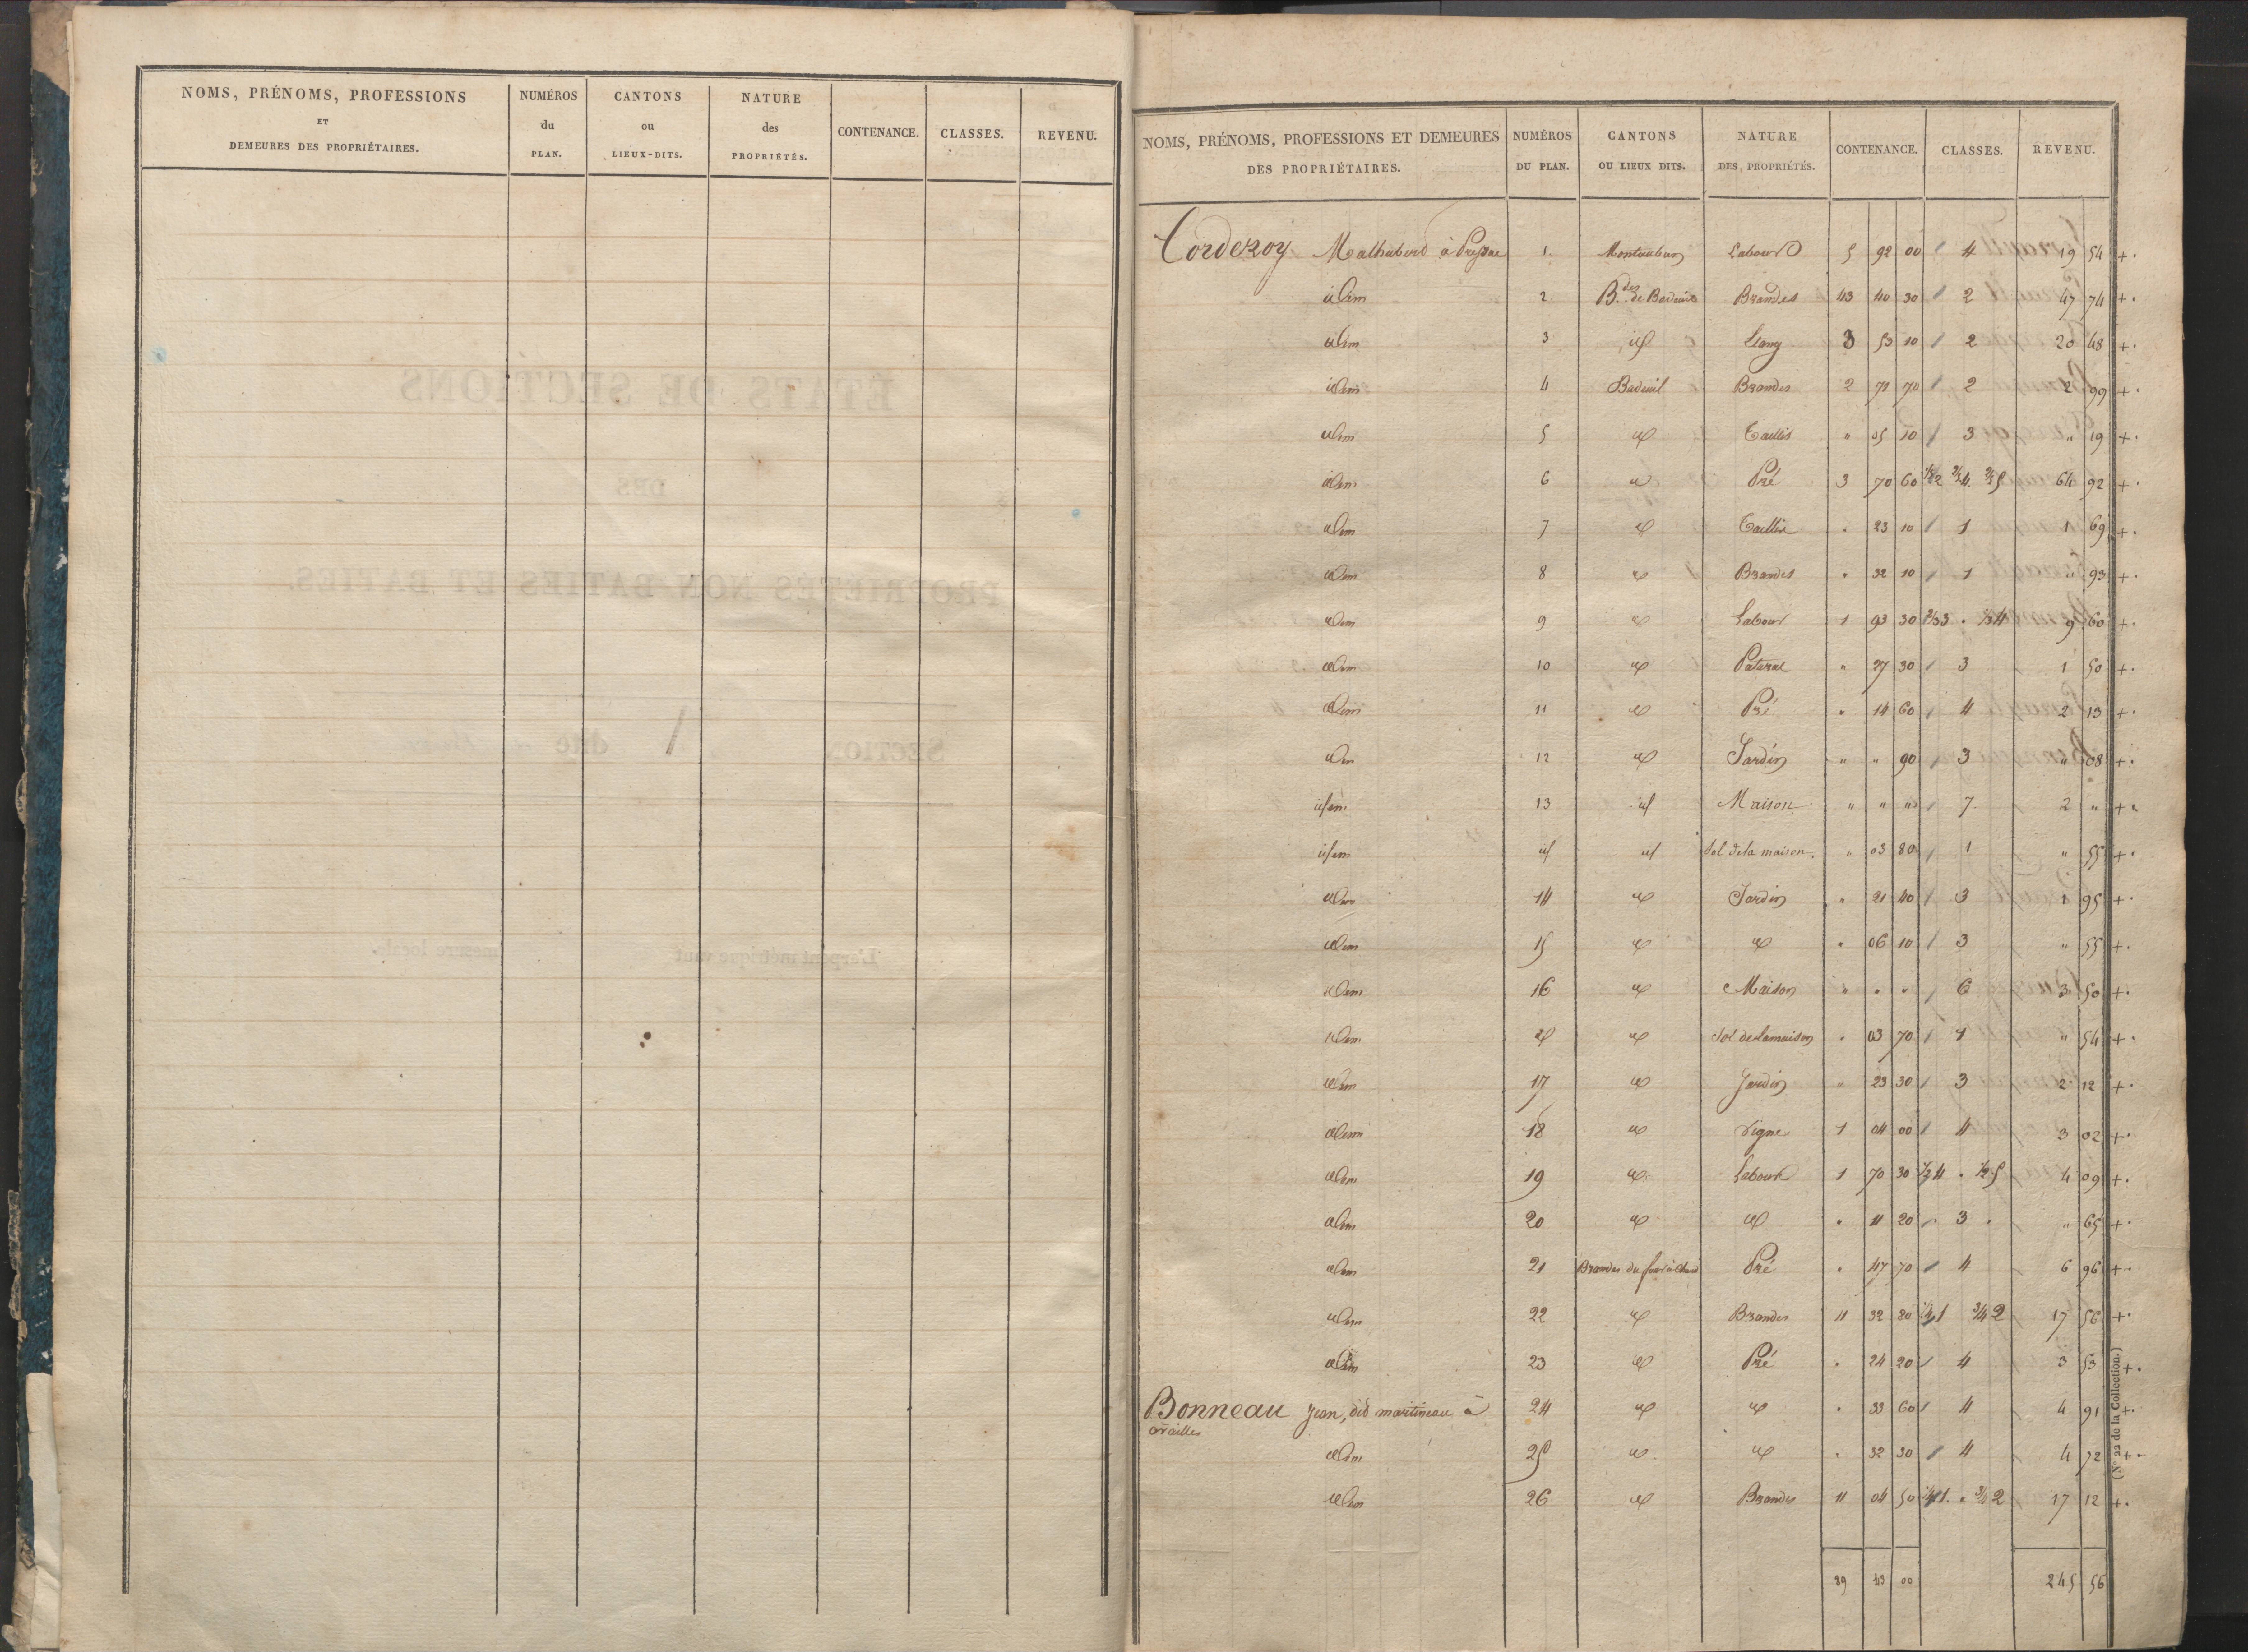 NOMS, PRÉNOMS, PROFESSIONS
ET
DEMEURES DES PROPRIÉTAIRES.
NUMÉROS
du
PLAN.
CANTONS
ou
LIEUX-DITS.
NATURE
des
PROPRIÉTÉS.
CONTENANCE.
CLASSES.
REVENU.
NOMS, PRÉNOMS, PROFESSIONS ET DEMEURES
DES PROPRIÉTAIRES.
NUMÉROS
DU PLAN.
CANTONS
OU LIEUX DITS.
NATURE
DES PROPRIÉTÉS.
CONTENANCE.
CLASSES.
REVENU.
Corderoy 1 Labour 5 92 00 / 4 19 54 +.
idem 2 Brandes 43 40 30 / 2 47 74 +.
idem 3 id 3 53 10 / 2 20 48 +.
idem 4 Badeuil Brandes 2 71 70 / 2 2 99 +.
idem 5 id Taillis " 05 10 / 3 " 19 +.
idem 6 id Pré 3 70 60 64 92 +.
idem 7 id Taillis " 23 10 / 1 1 69 +.
idem 8 id Brandes " 32 10 / 1 " 93 +.
idem 9 id Labour 1 93 30 2/3 3 . 1/3 4 9 60 +.
idem 10 id " 27 30 / 3 1 50 +.
idem 11 id Pré " 14 60 / 4 2 13 +.
idem 12 id Jardin " " 90 / 3 " 08 +.
idem 13 id Maison " " " / 7 2 " +.
idem id id Sol de la maison. " 03 80 / 1 " 55 +.
idem 14 id Jardin " 21 40 / 3 1 95 +.
idem 15 id id " 06 10 / 3 " 55 +.
idem 16 id Maison " " " / 6 3 50 +.
idem id id Sol de la maison " 03 70 / 1 " 54 +.
idem 17 id Jardin " 23 30 / 3 2 12 +.
idem 18 id Vigne 1 04 00 / 4 3 02 +.
idem 19 id Labour 1 70 30 1/2 4 . 1/2 5 4 09 +.
idem 20 id id " 11 20 / 3 " 65 +.
idem 21 Brandes du Pré " 47 70 / 4 6 96 +.
idem 22 id Brandes 11 32 20 1/4 1 3/4 2 17 56 +.
idem 23 id Pré " 24 20 / 4 3 53 +.
Bonneau Jean, dit martineau à 24 id id " 33 60 / 4 4 91 +.
idem 25 id id " 32 30 / 4 4 72 +.
idem 26 id Brandes 11 04 50 1/4 1 . 3/4 2 17 12 +.
89 43 00 245 56
(N° 22 de la Collection.)